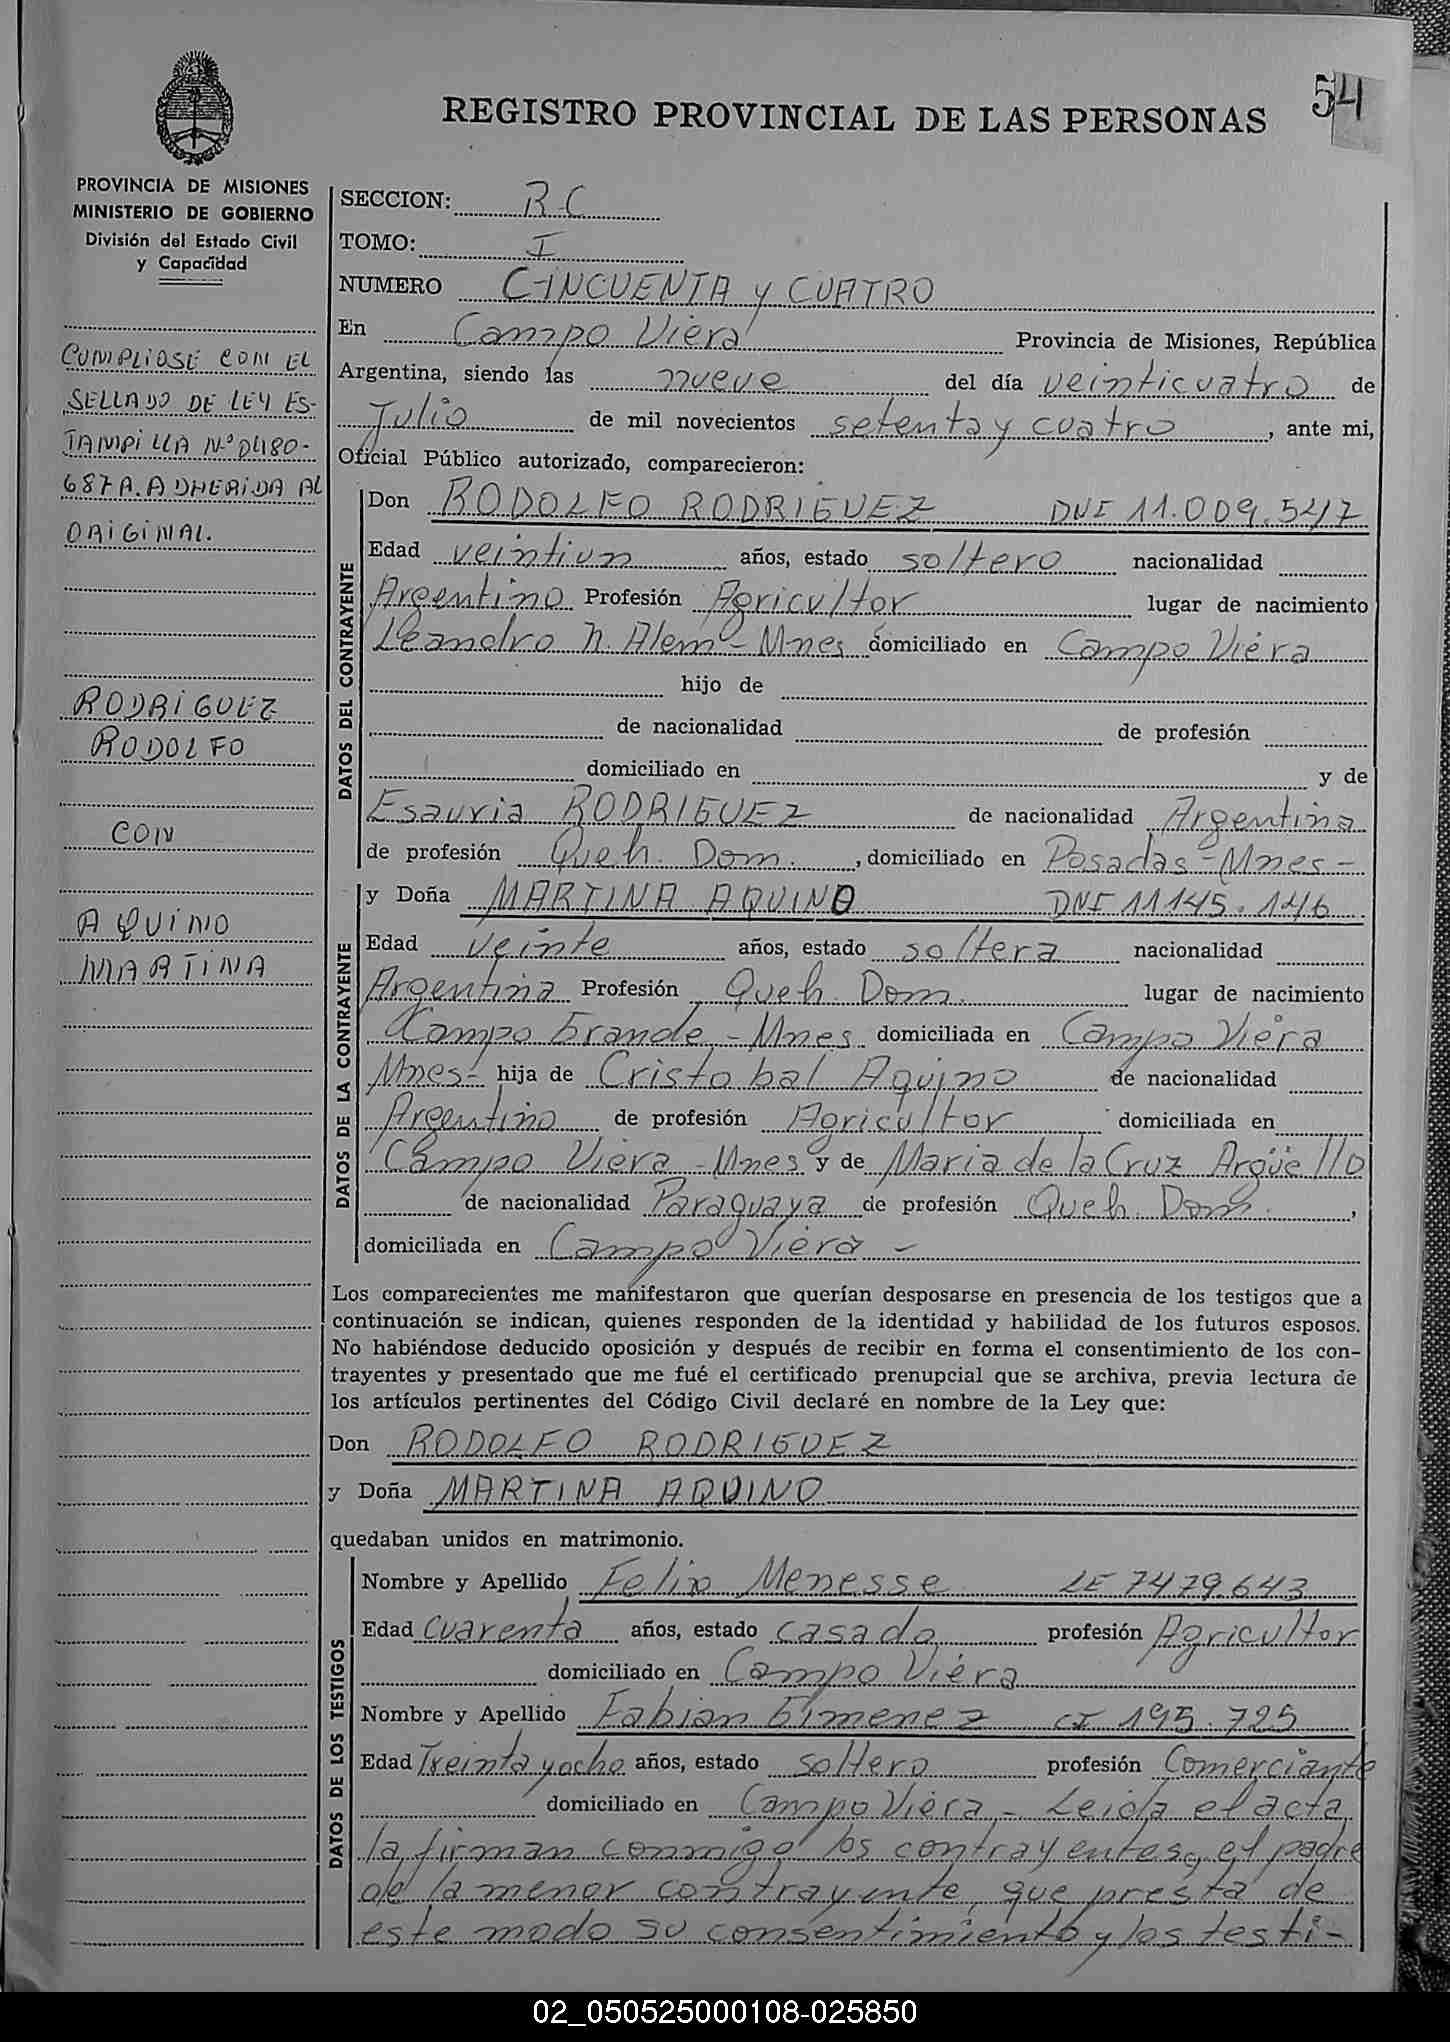 54
REGISTRO PROVINCIAL DE LAS PERSONAS
PROVINCIA DE MISIONES
MINISTERIO DE GOBIERNO
División del Estado Civil
y Capacidad
CUMPLIOSE CON EL
SELLADO DE LEY ES-
TAMPILLA Nº 0480-
687A. ADHERIDA AL
ORIGINAL.
RODRIGUEZ
RODOLFO
CON
AQUINO
MARTINA
SECCION: R C
TOMO: I
NUMERO CINCUENTA y CUATRO
En Campo Viera Provincia de Misiones, República
Argentina, siendo las nueve del día veinticuatro de
Julio de mil novecientos setenta y cuatro, ante mi,
Oficial Público autorizado, comparecieron:
DATOS DEL CONTRAYENTE
Don RODOLFO RODRIGUEZ DNI 11.009.547
Edad veintiun años, estado soltero nacionalidad
Argentino Profesión Agricultor lugar de nacimiento
Leandro N. Alem - Mnes domiciliado en Campo Viera
hijo de
de nacionalidad de profesión
domiciliado en y de
Esauria RODRIGUEZ de nacionalidad Argentina
de profesión Queh. Dom., domiciliado en Posadas - Mnes -
DATOS DE LA CONTRAYENTE
y Doña MARTINA AQUINO DNI 11145.146
Edad veinte años, estado soltera nacionalidad
Argentina Profesión Queh. Dom. lugar de nacimiento
Campo Grande - Mnes domiciliada en Campo Viera
Mnes- hija de Cristobal Aquino de nacionalidad
Argentino de profesión Agricultor domiciliada en
Campo Viera - Mnes y de Maria de la Cruz Argüello
de nacionalidad Paraguaya de profesión Queh. Dom.,
domiciliada en Campo Viera -
Los comparecientes me manifestaron que querían desposarse en presencia de los testigos que a
continuación se indican, quienes responden de la identidad y habilidad de los futuros esposos.
No habiéndose deducido oposición y después de recibir en forma el consentimiento de los con-
trayentes y presentado que me fué el certificado prenupcial que se archiva, previa lectura de
los artículos pertinentes del Código Civil declaré en nombre de la Ley que:
Don RODOLFO RODRIGUEZ
y Doña MARTINA AQUINO
quedaban unidos en matrimonio.
DATOS DE LOS TESTIGOS
Nombre y Apellido Felix Menesse LE 7479.643
Edad Cuarenta años, estado casado profesión Agricultor
domiciliado en Campo Viera
Nombre y Apellido Fabian Gimenez CI 195.725
Edad Treinta y ocho años, estado soltero profesión Comerciante
domiciliado en Campo Viera - Leida el acta
la firman conmigo los contrayentes, el padre
de la menor contrayente, que presta de
este modo su consentimiento y los testi-
02_050525000108-025850